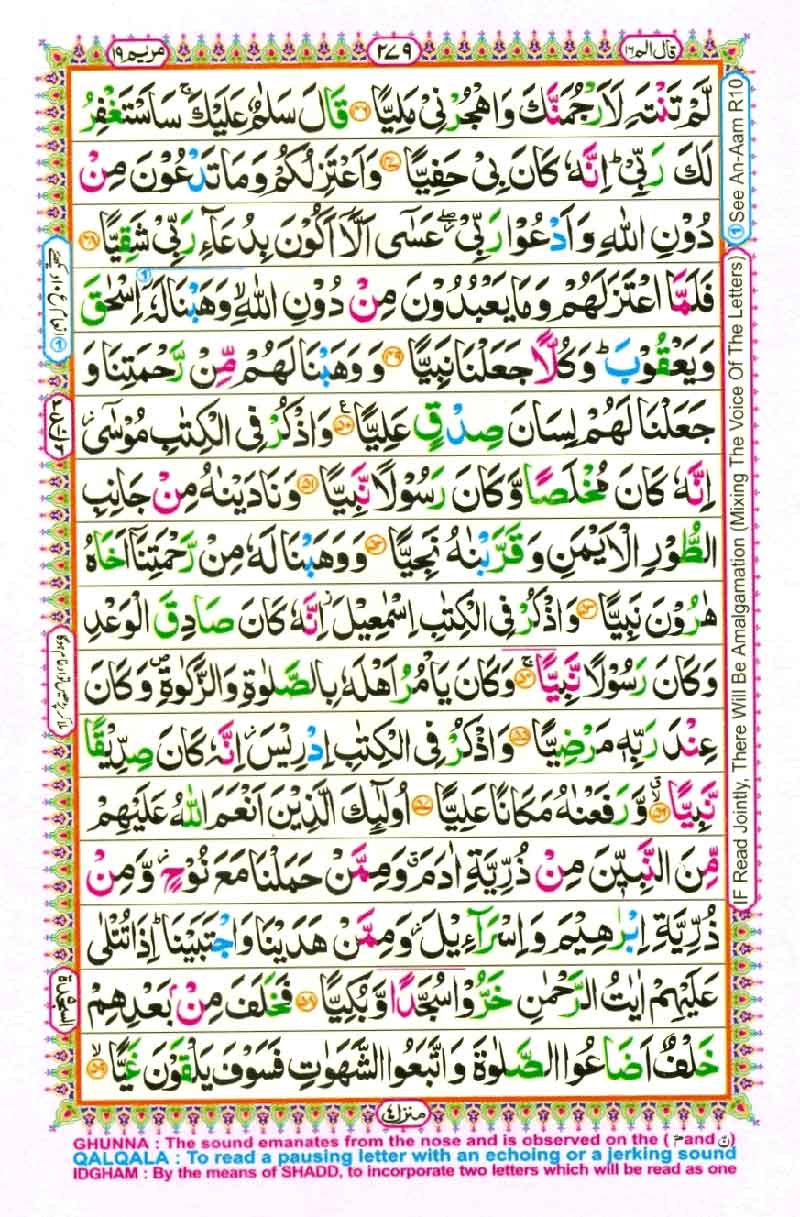 قال الم ١٦
٢٧٩
مریم ١٩
لَّمۡ تَنۡتَهِ لَاَرۡجُمَنَّكَ وَاهۡجُرۡنِىۡ مَلِيًّا ۟۴۶ قَالَ سَلٰمٌ عَلَيۡكَ‌ۚ سَاَسۡتَغۡفِرُ
لَكَ رَبِّىۡؕ اِنَّهٗ كَانَ بِىۡ حَفِيًّا ۟۴۷ وَاَعۡتَزِلُكُمۡ وَمَا تَدۡعُوۡنَ مِنۡ
دُوۡنِ اللّٰهِ وَاَدۡعُوۡا رَبِّىۡ‌ۖ عَسٰٓى اَلَّاۤ اَكُوۡنَ بِدُعَآءِ رَبِّىۡ شَقِيًّا ۟۴۸
فَلَمَّا اعۡتَزَلَهُمۡ وَمَا يَعۡبُدُوۡنَ مِنۡ دُوۡنِ اللّٰهِ‌ۙ وَهَبۡنَا لَهٗۤ اِسۡحٰقَ
وَيَعۡقُوۡبَ‌ؕ وَكُلًّا جَعَلۡنَا نَبِيًّا ۟۴۹ وَوَهَبۡنَا لَهُمۡ مِّنۡ رَّحۡمَتِنَا وَ
جَعَلۡنَا لَهُمۡ لِسَانَ صِدۡقٍ عَلِيًّا ۟۵۰ وَاذۡكُرۡ فِى الۡكِتٰبِ مُوۡسٰٓى‌
اِنَّهٗ كَانَ مُخۡلَصًا وَّكَانَ رَسُوۡلًا نَّبِيًّا ۟۵۱ وَنَادَيۡنٰهُ مِنۡ جَانِبِ
الطُّوۡرِ الۡاَيۡمَنِ وَقَرَّبۡنٰهُ نَجِيًّا ۟۵۲ وَوَهَبۡنَا لَهٗ مِنۡ رَّحۡمَتِنَاۤ اَخَاهُ
هٰرُوۡنَ نَبِيًّا ۟۵۳ وَاذۡكُرۡ فِى الۡكِتٰبِ اِسۡمٰعِيۡلَ‌ اِنَّهٗ كَانَ صَادِقَ الۡوَعۡدِ
وَكَانَ رَسُوۡلًا نَّبِيًّا‌ۚ ۟۵۴ وَكَانَ يَاۡمُرُ اَهۡلَهٗ بِالصَّلٰوةِ وَالزَّكٰوةِ وَكَانَ
عِنۡدَ رَبِّهٖ مَرۡضِيًّا ۟۵۵ وَاذۡكُرۡ فِى الۡكِتٰبِ اِدۡرِيۡسَ‌ اِنَّهٗ كَانَ صِدِّيۡقًا
نَّبِيًّا ۟ۙ۵۶ وَّرَفَعۡنٰهُ مَكَانًا عَلِيًّا ۟۵۷ اُولٰٓٮِٕكَ الَّذِيۡنَ اَنۡعَمَ اللّٰهُ عَلَيۡهِمۡ
مِّنَ النَّبِيّٖنَ مِنۡ ذُرِّيَّةِ اٰدَمَ وَمِمَّنۡ حَمَلۡنَا مَعَ نُوۡحٍ وَّمِنۡ
ذُرِّيَّةِ اِبۡرٰهِيۡمَ وَاِسۡرَآءِيۡلَ وَمِمَّنۡ هَدَيۡنَا وَاجۡتَبَيۡنَا‌ؕ اِذَا تُتۡلٰى
عَلَيۡهِمۡ اٰيٰتُ الرَّحۡمٰنِ خَرُّوۡا سُجَّدًا وَّبُكِيًّا ۟۵۸ فَخَلَفَ مِنۡۢ بَعۡدِهِمۡ
خَلۡفٌ اَضَاعُوا الصَّلٰوةَ وَاتَّبَعُوا الشَّهَوٰتِ‌ فَسَوۡفَ يَلۡقَوۡنَ غَيًّا ۟ۙ۵۹
السجدة
منزل ٤
① See An-Aam R10
IF Read Jointly, There Will Be Amalgamation (Mixing The Voice Of The Letters)
GHUNNA : The sound emanates from the nose and is observed on the ( م and ن )
QALQALA : To read a pausing letter with an echoing or a jerking sound
IDGHAM : By the means of SHADD, to incorporate two letters which will be read as one